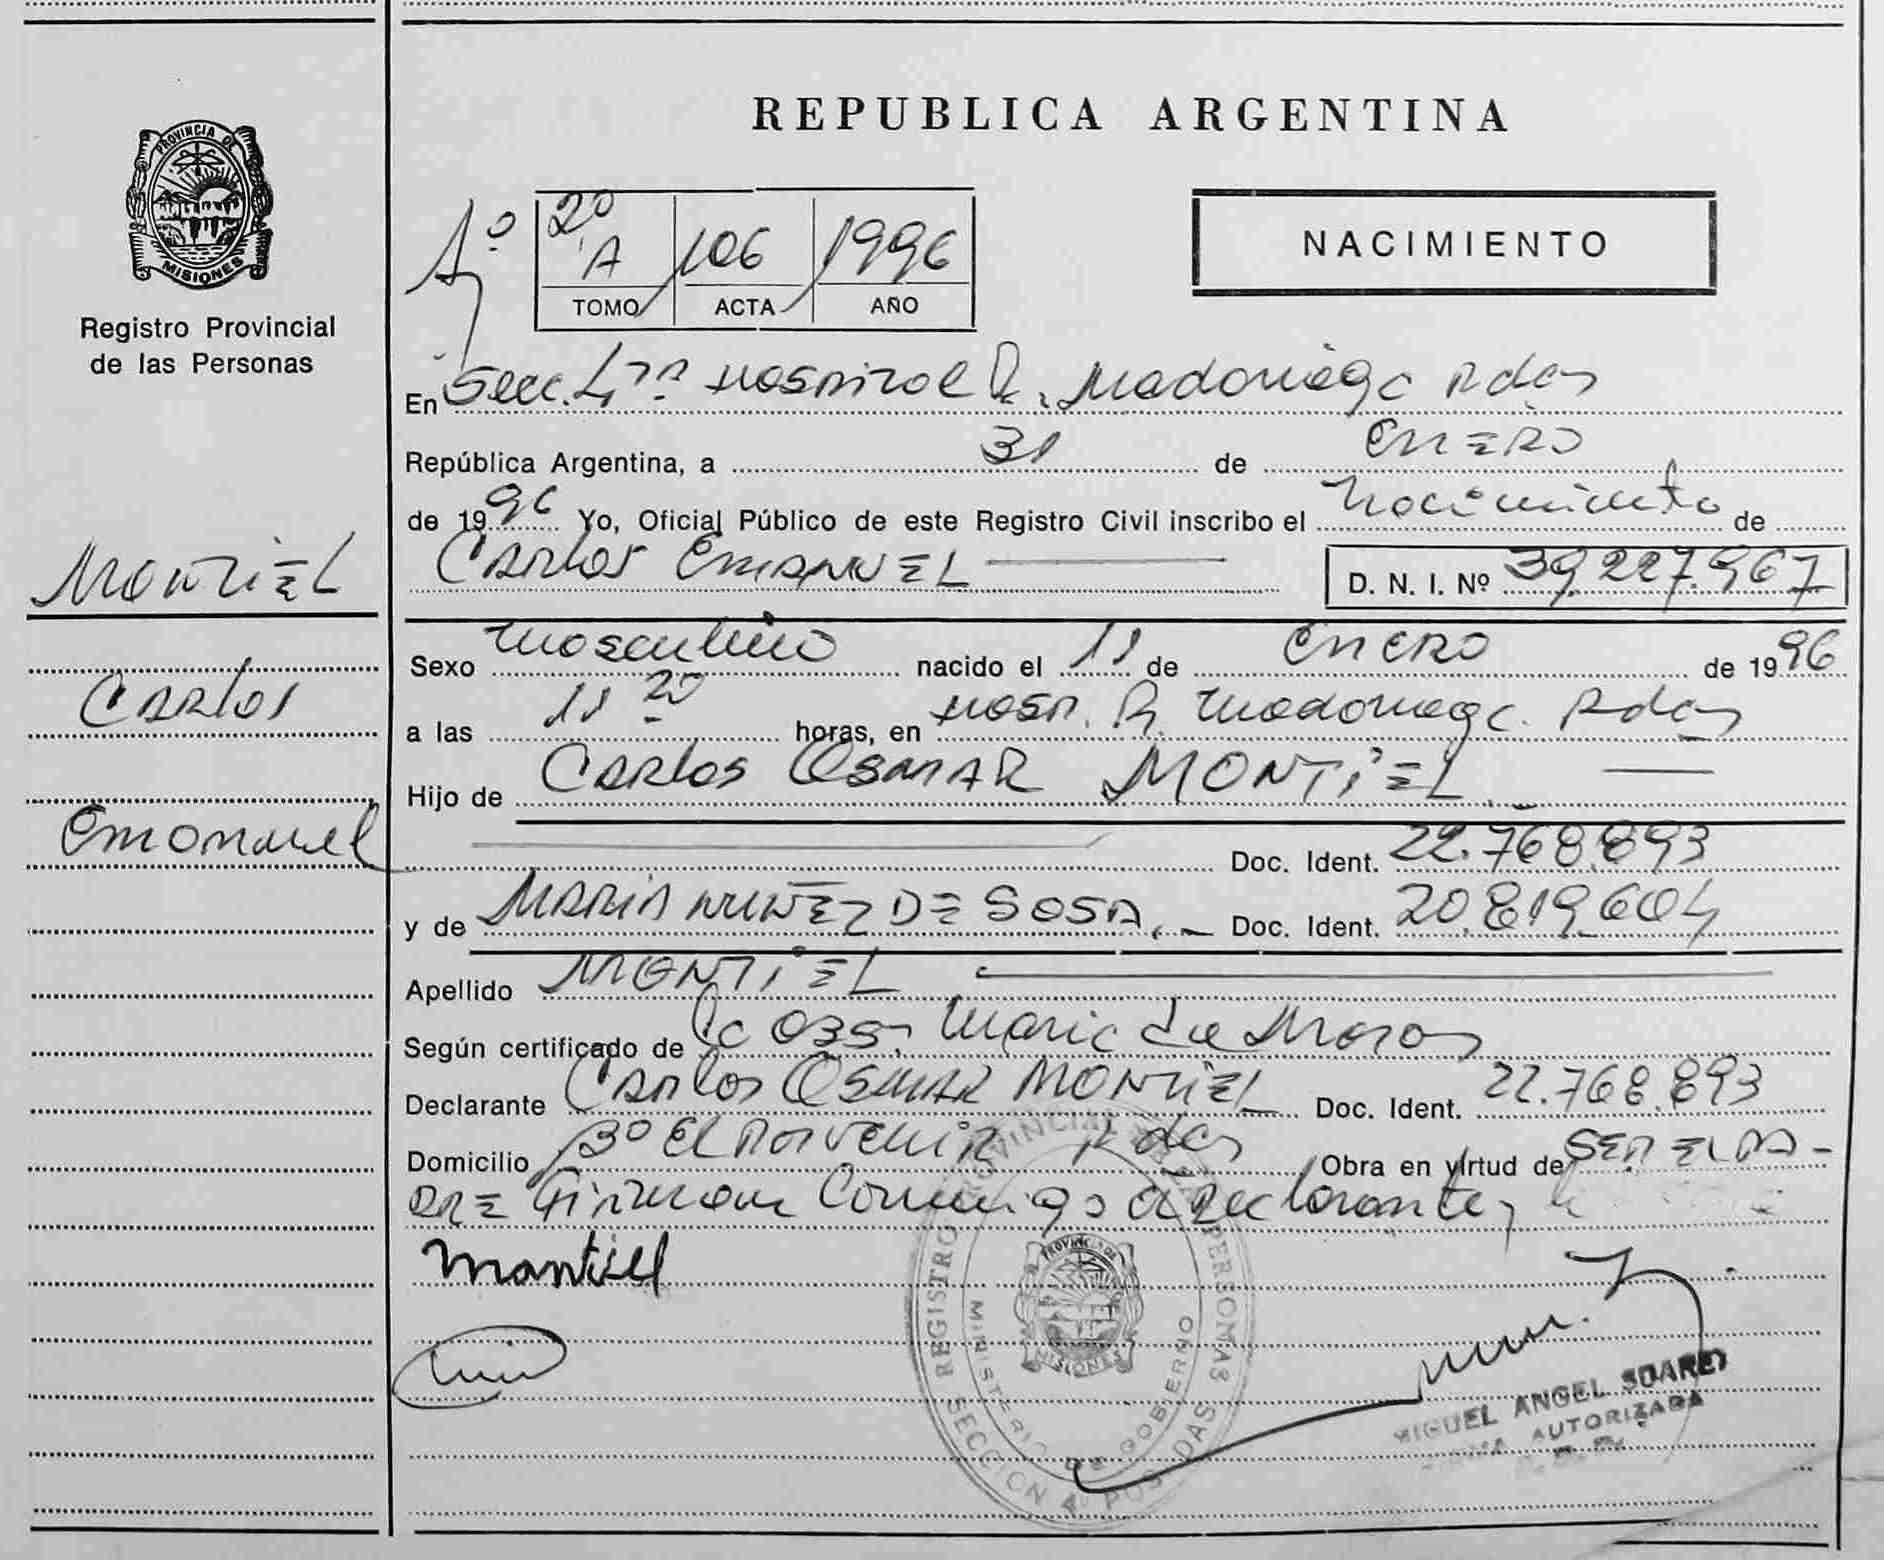 PROVINCIA DE
MISIONES
Registro Provincial
de las Personas
MONTIEL
Carlos
Emanuel
REPUBLICA ARGENTINA
2º
A 106 1996
TOMO ACTA AÑO
NACIMIENTO
En Secc. 4ta Hospital R. Madariaga Pdas
República Argentina, a 31 de ENERO
de 1996 Yo, Oficial Público de este Registro Civil inscribo el Nacimiento de
Carlos EMANUEL D. N. I. Nº 39.227.967
Sexo masculino nacido el 11 de ENERO de 1996
a las 11 20 horas, en Hosp. R. Madariaga. Pdas
Hijo de Carlos OSMAR MONTIEL
Doc. Ident. 22.768.893
y de MARIA NUÑEZ DE SOSA. Doc. Ident. 20.819.604
Apellido MONTIEL
Según certificado de la Obst. Maria de
Declarante Carlos OSMAR MONTIEL Doc. Ident. 22.768.893
Domicilio Bº El Porvenir Pdas Obra en virtud de SER EL PA-
DRE Firman Conmigo declarante,
Montiel
REGISTRO PROVINCIAL DE LAS PERSONAS
MINISTERIO DE GOBIERNO
PROVINCIA DE
MISIONES
SECCION 4ª POSADAS
MIGUEL ANGEL SUAREZ
FIRMA AUTORIZADA